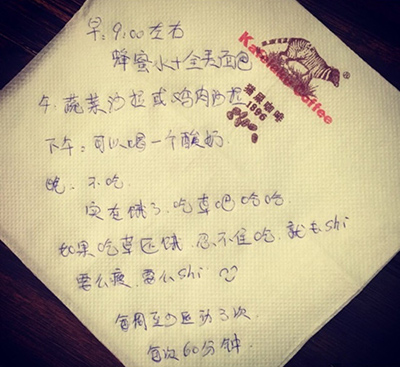 早：9:00左右
蜂蜜水+全麦面包
午：蔬菜沙拉或鸡肉沙拉
下午：可以喝一个酸奶
晚：不吃
实在饿了，吃草吧哈哈
如果吃草还饿，忍不住吃，就去shi
要么瘦，要么shi
每周至少运动3次
每次60分钟.
Coffee
猫屎咖啡
1896